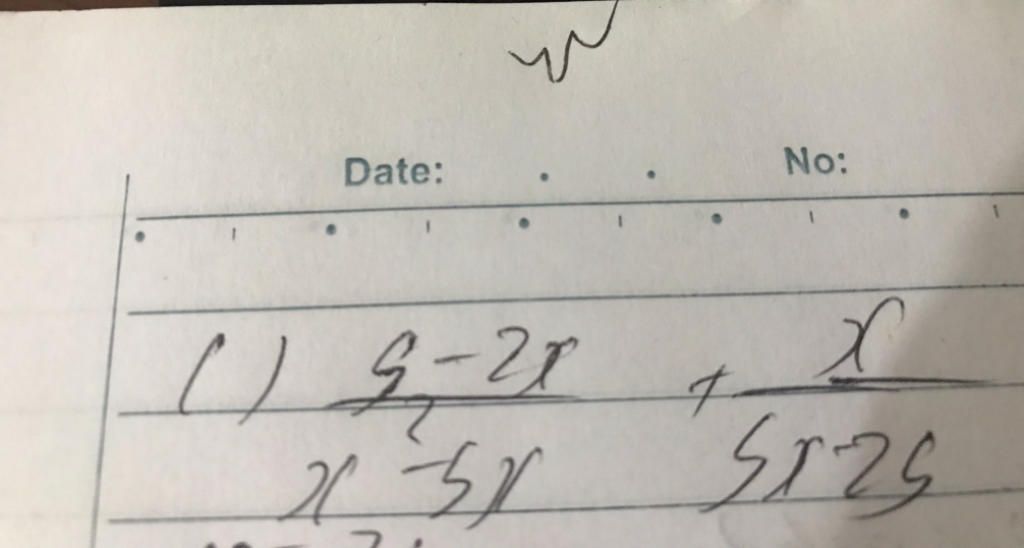 Date: . . No:
( ) 5-2x / x²-5x + x / 5x-25